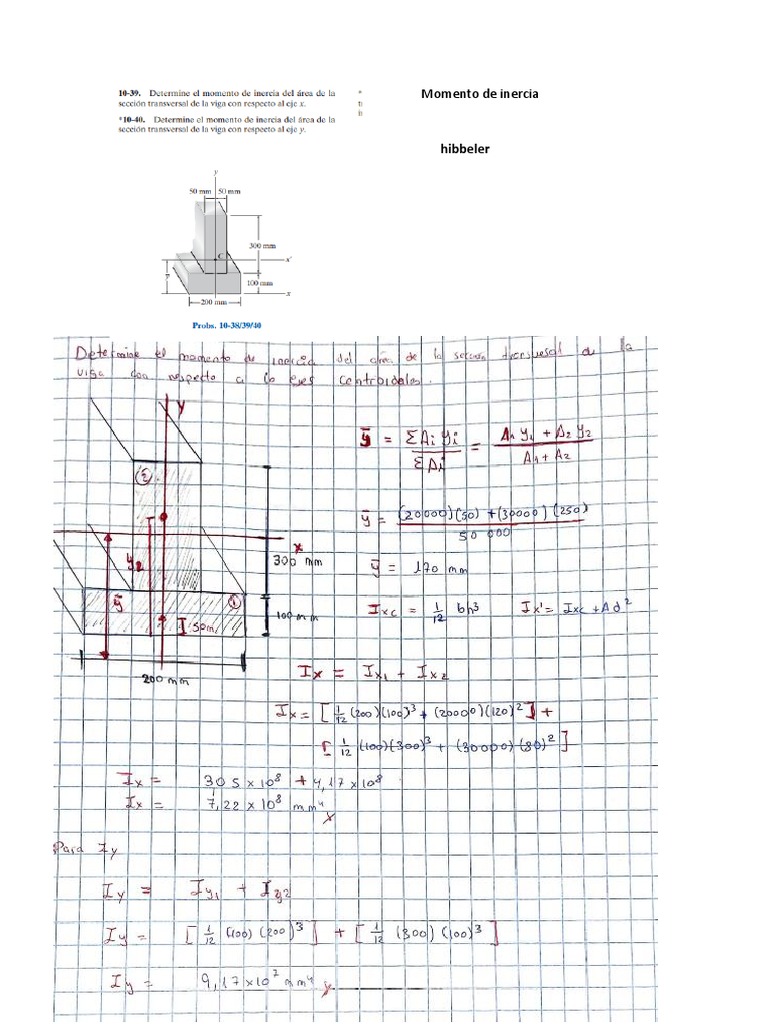 10-39. Determine el momento de inercia del área de la
sección transversal de la viga con respecto al eje x.
*10-40. Determine el momento de inercia del área de la
sección transversal de la viga con respecto al eje y.
Momento de inercia
hibbeler
y
50 mm 50 mm
300 mm
C
x'
ȳ
100 mm
x
200 mm
Probs. 10-38/39/40
Determine el momento de inercia del área de la sección transversal de la
viga con respecto a lo ejes centroidales.
y
②
x
y2
300 mm
ȳ
①
100 mm
50m
200 mm
ȳ = ΣAi yi / ΣAi = A1 y1 + A2 y2 / A1 + A2
ȳ = (20000)(50) + (30000)(250) / 50 000
ȳ = 170 mm
Ixc = 1/12 bh³ Ix' = Ixc + Ad²
Ix = Ix1 + Ix2
Ix = [1/12 (200)(100)³ + (20000)(120)²] +
[1/12 (100)(300)³ + (30000)(80)²]
Ix = 3,05 x 10⁸ + 4,17 x 10⁸
Ix = 7,22 x 10⁸ mm⁴
Para Iy
Iy = Iy1 + Iy2
Iy = [1/12 (100)(200)³] + [1/12 (300)(100)³]
Iy = 9,17 x 10⁷ mm⁴